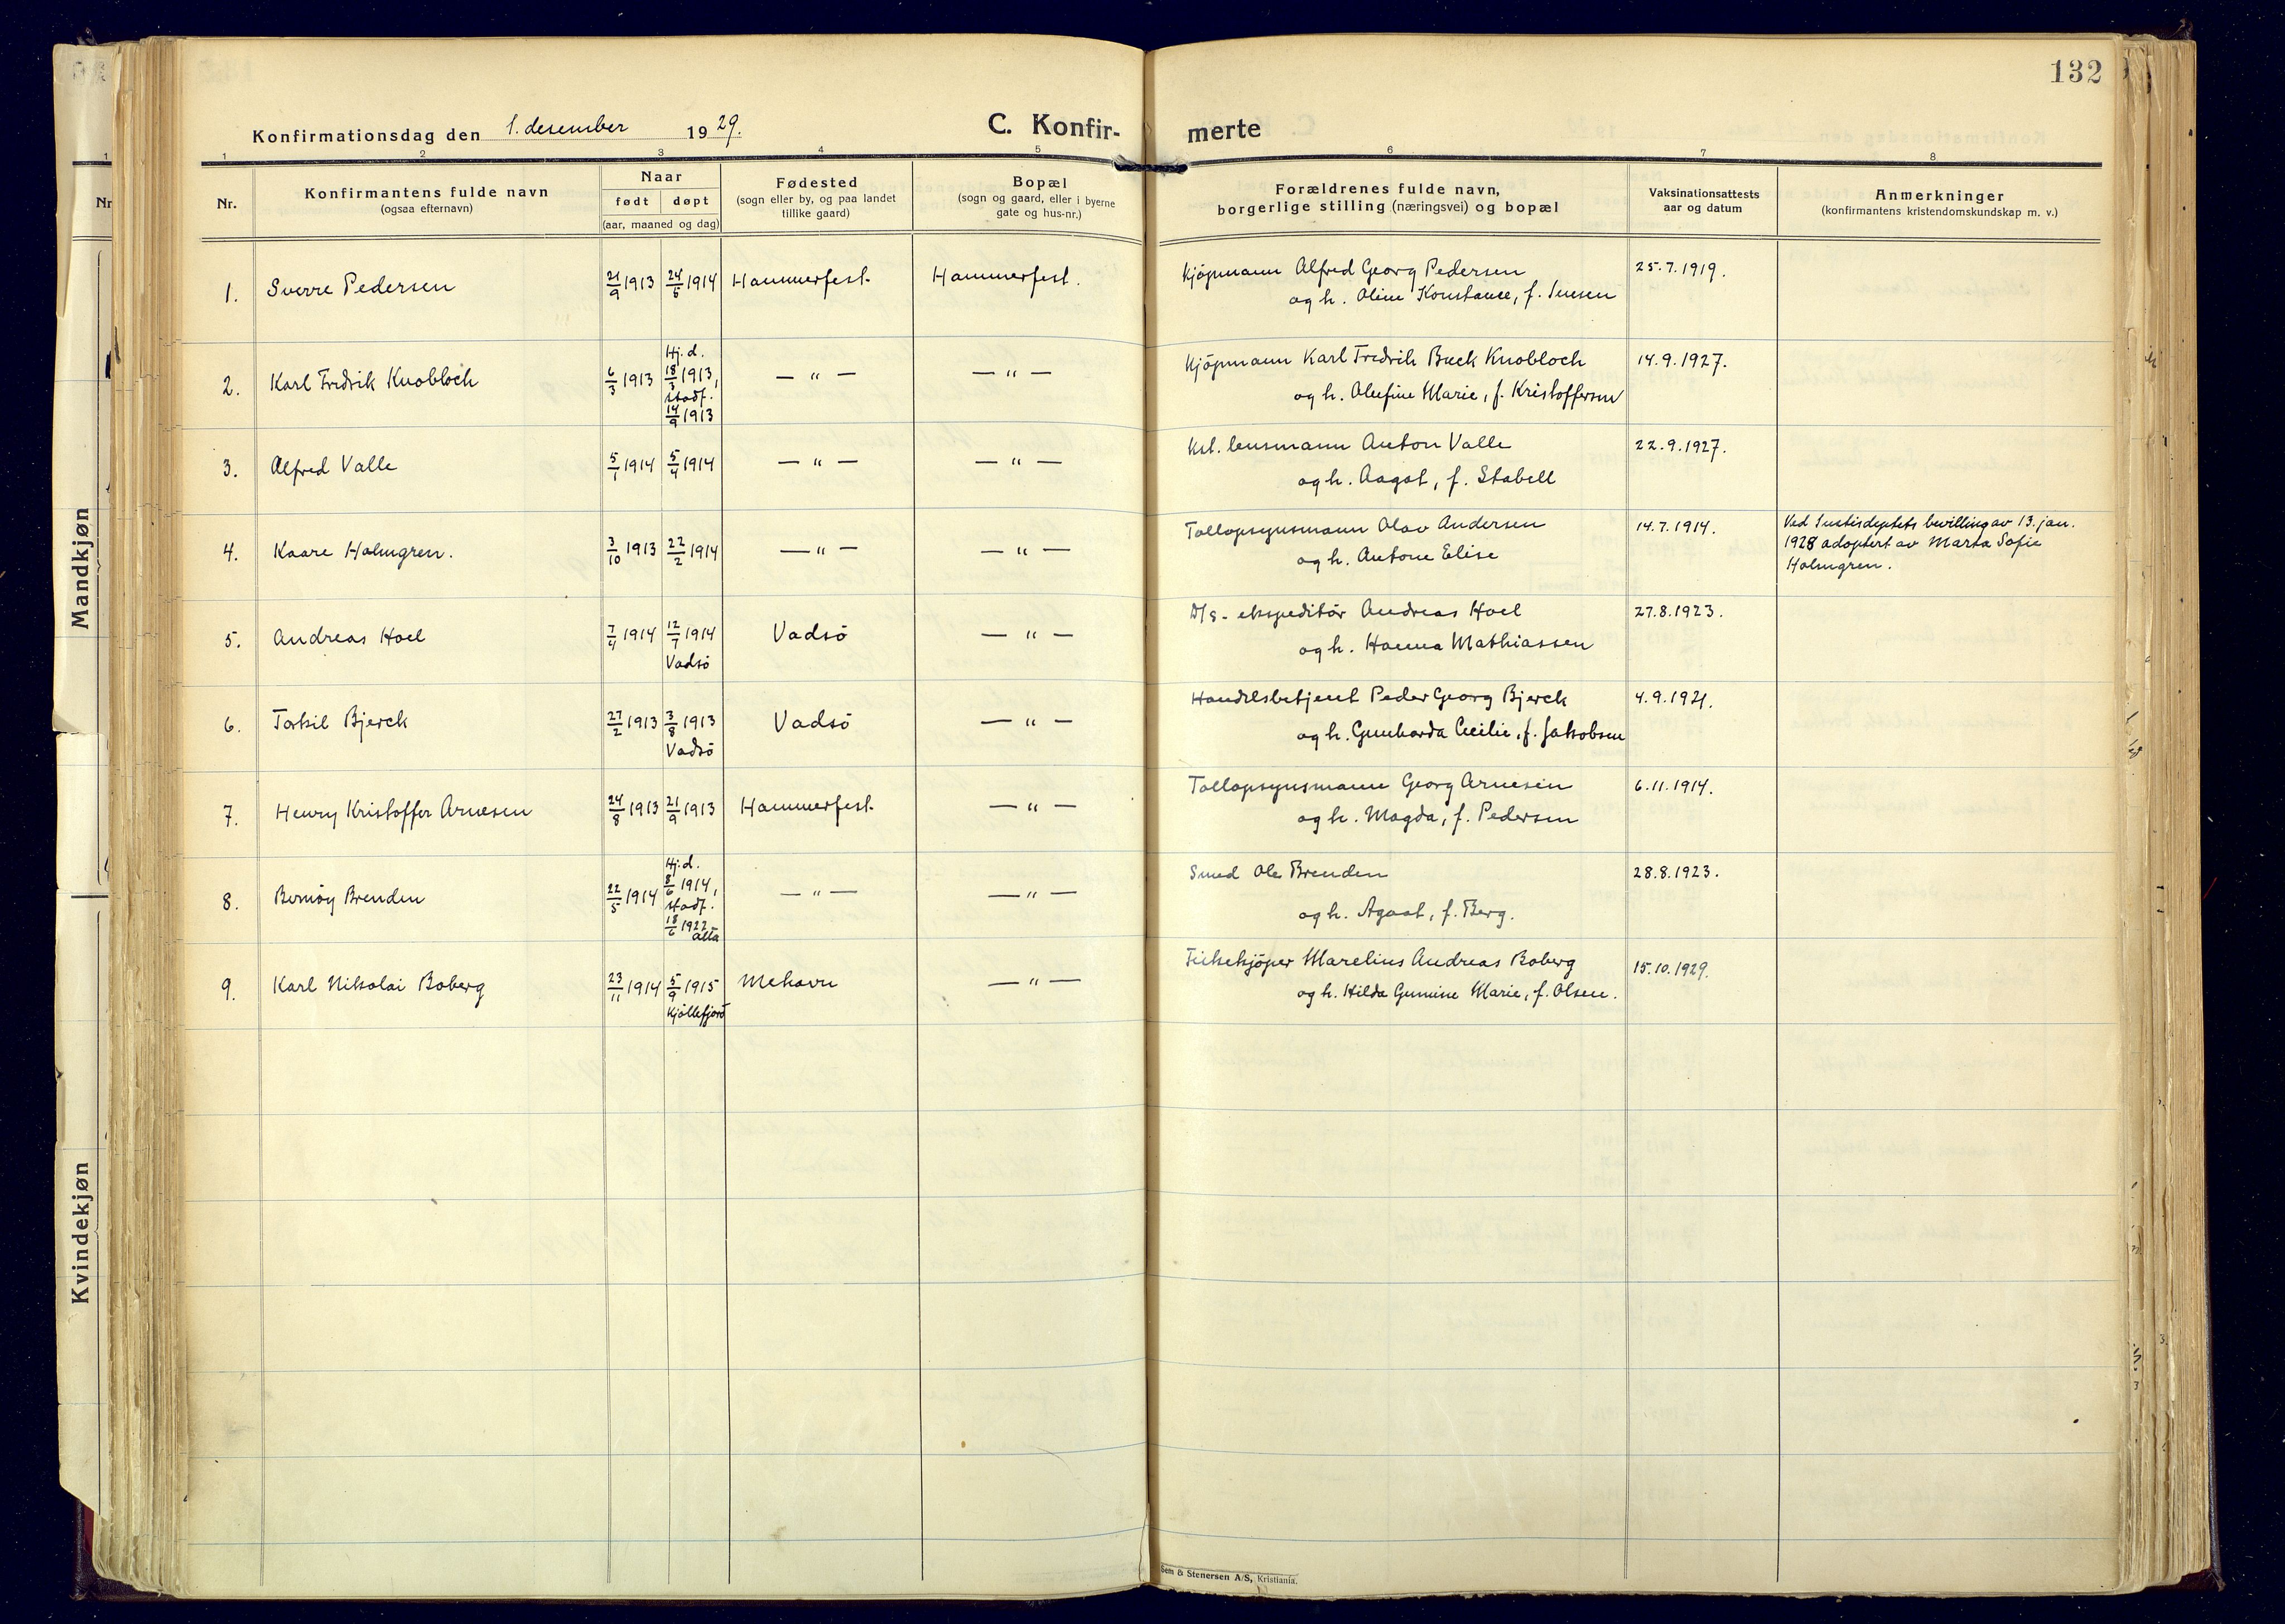 132
Konfirmationsdag den 1. desember 1929.
C. Konfir- merte
1 2 3 4 5 6 7 8
Nr.
Konfirmantens fulde navn
(ogsaa efternavn)
Naar
født døpt
(aar, maaned og dag)
Fødested
(sogn eller by, og paa landet
tillike gaard)
Bopæl
(sogn og gaard, eller i byerne
gate og hus-nr.)
Forældrenes fulde navn,
borgerlige stilling (næringsvei) og bopæl
Vaksinationsattests
aar og datum
Anmerkninger
(konfirmantens kristendomskundskap m. v.)
Mandkjøn
Kvindekjøn
1. Sverre Pedersen 21/9 1913 24/5 1914 Hammerfest. Hammerfest. Kjøpmann Alfred Georg Pedersen 25.7.1919.
og h. Oline Konstance, f.
2. Karl Fredrik Knobloch 6/3 1913 Hj. d. 18/3 1913, stadf. 14/9 1913 — " — — " — Kjøpmann Karl Fredrik Buck Knobloch 14.9.1927.
og h. Olufine Marie, f. Kristoffersen
3. Alfred Valle 5/1 1914 5/4 1914 — " — — " — Kst. lensmann Anton Valle 22.9.1927.
og h. Aagot, f. Stabell
4. Kaare Holmgren. 3/10 1913 22/2 1914 — " — — " — Tollopsynsmann Olav Andersen 14.7.1914. Ved Justisdeptets bevilling av 13. jan.
og h. Antone Elise 1928 adoptert av Marta Sofie
Holmgren.
5. Andreas Hoel 7/4 1914 12/7 1914 Vadsö Vadsö — " — D/S - ekspeditör Andreas Hoel 27.8.1923.
og h. Hanna Mathiassen
6. Torkil Bjerck 27/2 1913 3/8 1913 Vadsö Vadsö — " — Handelsbetjent Peder Georg Bjerck 4.9.1921.
og h. Gunharda Cecilie, f. Jakobsen
7. Henry Kristoffer Arnesen 24/8 1913 21/9 1913 Hammerfest. — " — Tollopsynsmann Georg Arnesen 6.11.1914.
og h. Magda, f. Pedersen
8. Bernöy Brenden 22/5 1914 Hj. d. 8/6 1914, stadf. 18/6 1922 Alta — " — — " — Smed Ole Brenden 28.8.1923.
og h. Agaat, f. Berg.
9. Karl Nikolai Boberg 23/11 1914 5/9 1915 Kjöllefjord Mehavn — " — Fiskekjöper Marelius Andreas Boberg 15.10.1929.
og h. Hilda Gunine Marie, f. Olsen.
Sem & Stenersen A/S, Kristiania.